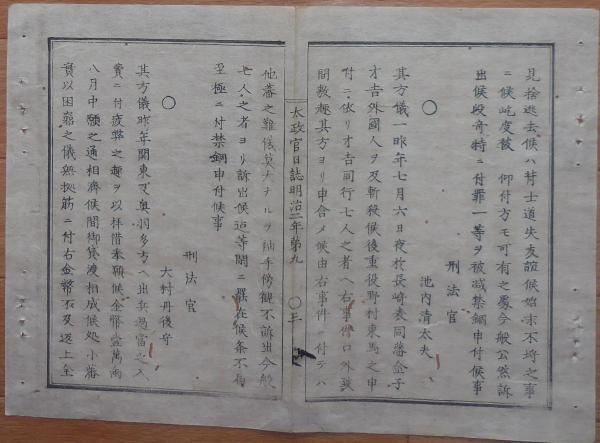 見捨逃去候ハ背士道失友誼候始末不埒之事
ニ候屹度被 仰付方モ可有之處今般公然訴
出候段奇特ニ付罪一等ヲ被減禁錮申付候事
刑法官
池内清太夫
其方儀一昨年七月六日夜於長崎表同藩金子
才吉外國人ヲ及斬殺候後重役野村東馬之申
付ニ依リ才吉同行七人之者ヘ右事件口外致
間敷趣其方ヨリ申合メ候由右事件ニ付テハ
太政官日誌明治二年第九 〇三
他藩之難儀莫大ナルヲ袖手傍観不訴出今般
七人之者ヨリ訴出候迄等閑ニ罷在候条不届
至極ニ付禁錮申付候事
刑法官
〇
大村丹後守
其方儀昨年關東及奥羽多方ヘ出兵過當之入
費ニ付疲弊之趣ヲ以拝借奉願候金幣壹萬両
八月中願之通相濟候間御貸渡相成候処小藩
實以困窮之儀無拠筋ニ付右金幣不及返上全